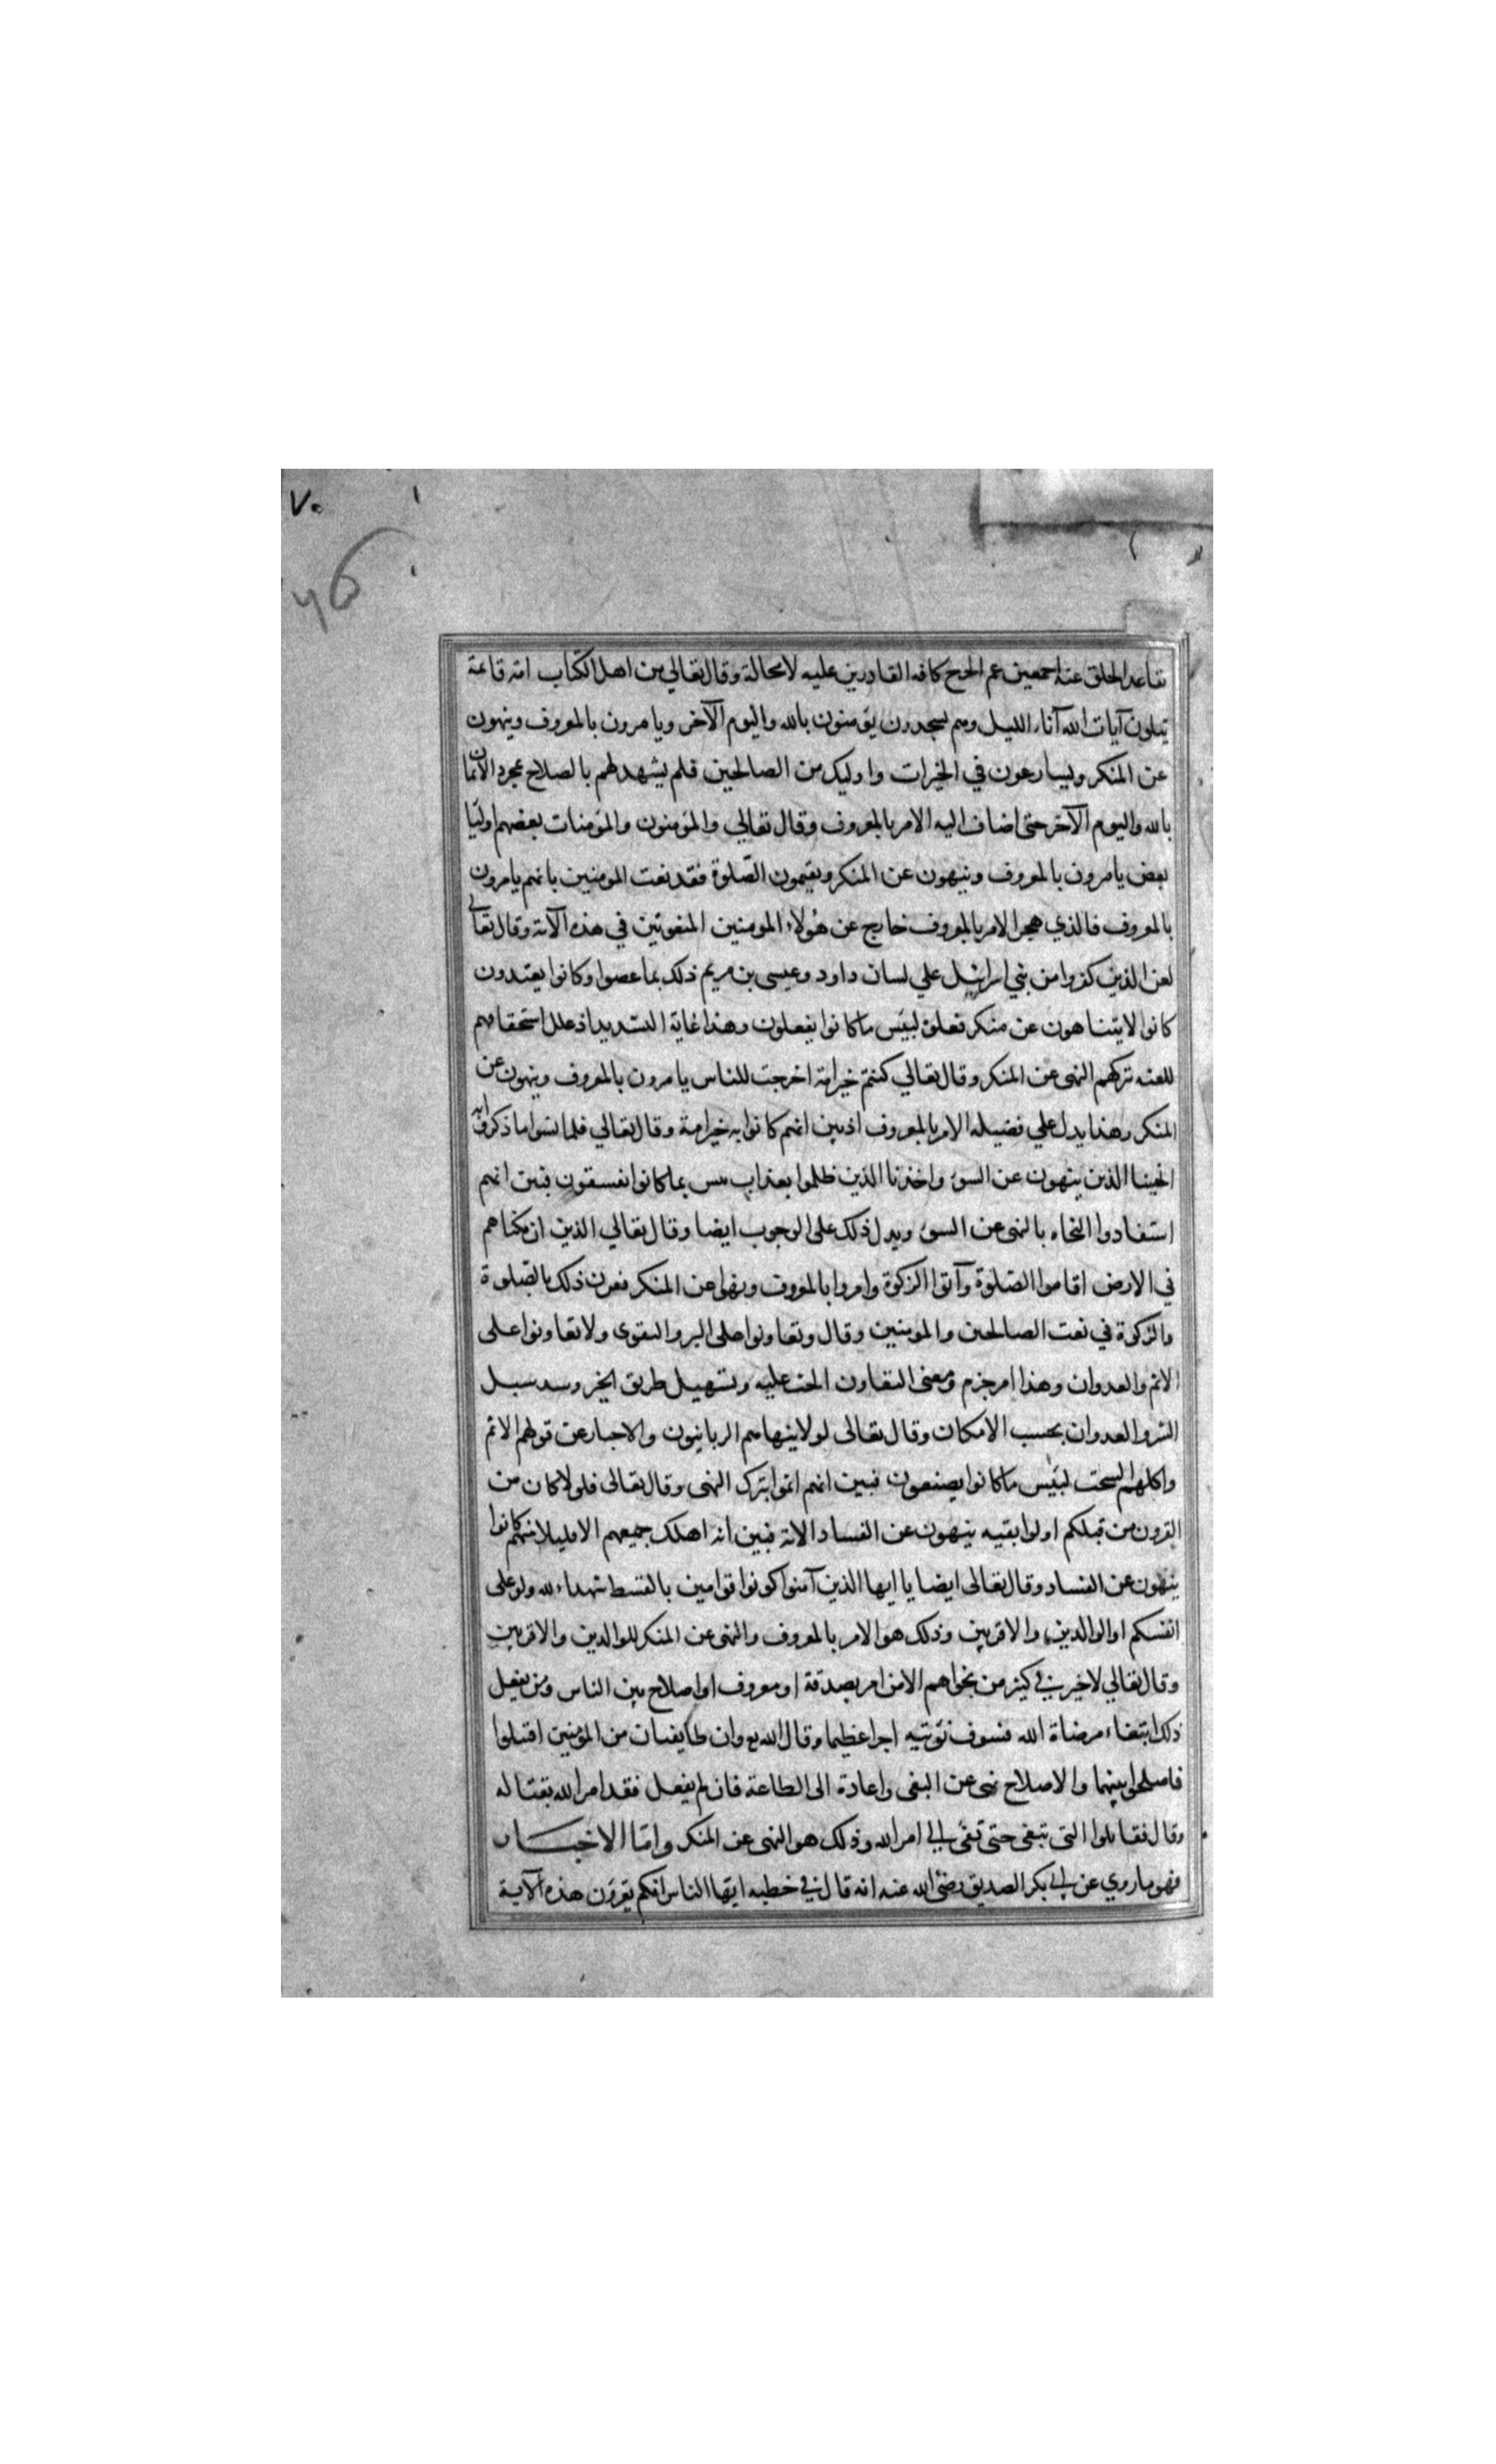 ٧٠
تقاعد الخلق عنه اجمعين عم الحرج كافه القادرين عليه لامحالة وقال تعالي من اهل الكتاب امة قائمة
يتلون آيات الله آناء الليل وهم يسجدون يؤمنون بالله واليوم الآخر ويامرون بالمعروف وينهون
عن المنكر ويسارعون في الخيرات واوليك من الصالحين فلم يشهد لهم بالصلاح بمجرد الايمان
بالله واليوم الآخر حتى اضاف اليه الامر بالمعروف وقال تعالي والمؤمنون والمؤمنات بعضهم اوليا
بعض يامرون بالمعروف وينهون عن المنكر ويقيمون الصّلوة فقد نعت المومنين بانهم يامرون
بالمعروف فالذي هجر الامر بالمعروف خارج عن هؤلاء المومنين المنعوتين في هذه الآية وقال تعالي
لعن الذين كفروا من بني اسرائيل علي لسان داود وعيسى بن مريم ذلك بما عصوا وكانوا يعتدون
كانوا لايتناهون عن منكر فعلوه لبئس ماكانوا يفعلون وهذا غاية التشديد اذ علل استحقاقهم
للعنه بتركهم النهى عن المنكر وقال تعالي كنتم خير امة اخرجت للناس يامرون بالمعروف وينهون عن
المنكر وهذا يدل علي فضيله الامر بالمعروف اذ بين انهم كانوا به خير امة وقال تعالي فلما نسوا ما ذكروا به
انجينا الذين ينهون عن السوء واخذنا الذين ظلموا بعذاب بيس بما كانوا يفسقون فبين انهم
استفادوا النجاه بالنهى عن السوء ويدل ذلك على الوجوب ايضا وقال تعالي الذين ان مكناهم
في الارض اقاموا الصّلوة وآتوا الزكوة وامروا بالمعروف ونهوا عن المنكر فقرن ذلك بالصّلوة
والزكوة في نعت الصالحين والمومنين وقال وتعاونوا على البر والتقوى ولا تعاونوا على
الاثم والعدوان وهذا امر جزم ومعنى التعاون الحث عليه وتسهيل طريق الخير وسد سبيل
الشر والعدوان بحسب الامكان وقال تعالى لولا ينهاهم الربانيون والاحبار عن قولهم الاثم
واكلهم السحت لبئس ماكانوا يصنعون فبين انهم اثموا بترك النهى وقال تعالى فلولا كان من
القرون من قبلكم اولوا بقيه ينهون عن الفساد الاية فبين انه اهلك جميعهم الا قليلا منهم كانوا
ينهون عن الفساد وقال تعالى ايضا يا ايها الذين آمنوا كونوا قوامين بالقسط شهداء لله ولو على
انفسكم او الوالدين والاقربين وذلك هو الامر بالمعروف والنهى عن المنكر للوالدين والاقربين
وقال تعالي لاخير في كثير من نجواهم الا من امر بصدقة او معروف او اصلاح بين الناس ومن يفعل
ذلك ابتغاء مرضاة الله فسوف نؤتيه اجرا عظيما وقال الله تع وان طايفتان من المؤمنين اقتتلوا
فاصلحوا بينهما والاصلاح نهى عن البغى واعادة الى الطاعة فان لم يفعل فقد امر الله بقتاله
وقال فقاتلوا التي تبغى حتى تفى الي امر الله وذلك هو النهى عن المنكر وامّا الاخبار
فهو ما روي عن ابي بكر الصديق رضى الله عنه انه قال في خطبه ايها الناس انكم تقرؤن هذه الآية